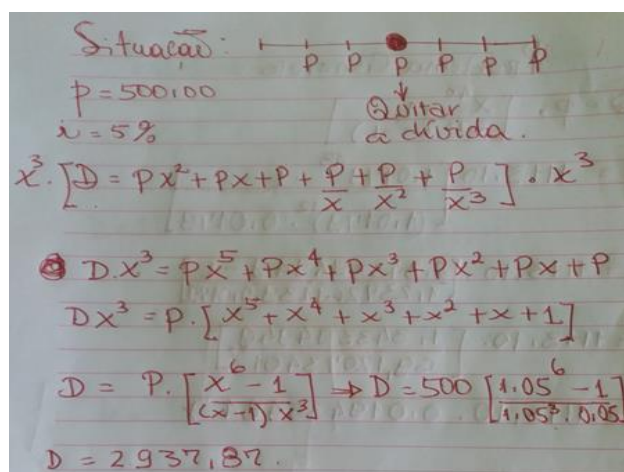 Situação:
P P P P P P
p = 500,00
Quitar
i = 5%
a dívida.
x³. [D = Px² + Px + P + P/x + P/x² + P/x³] . x³
D.x³ = Px⁵ + Px⁴ + Px³ + Px² + Px + P
Dx³ = P. [x⁵ + x⁴ + x³ + x² + x + 1]
D = P. [x⁶ - 1 / (x-1) x³] → D = 500 [1.05⁶ - 1 / 1.05³ . 0,05]
D = 2937,87.